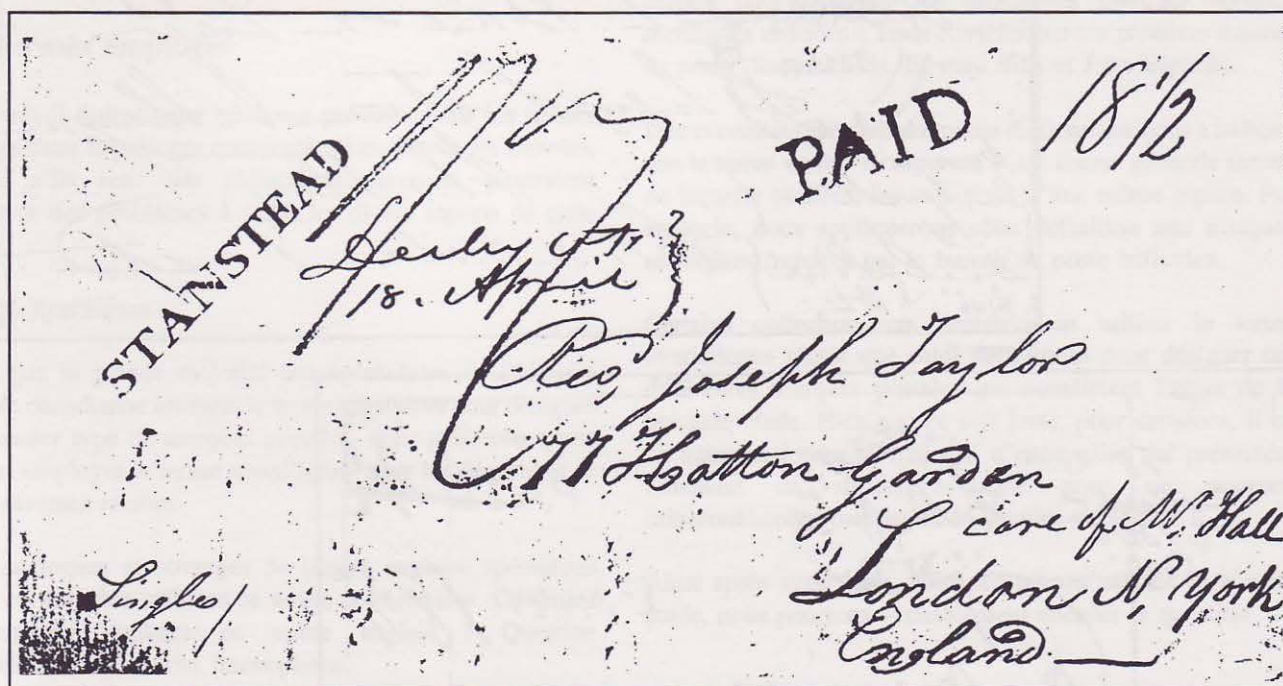 STANSTEAD
PAID 18 1/2
Derby Vt.
18. April
Rev Joseph Taylor
77 Hatton Garden
care of Mr. Hall
London N. York
England
Single